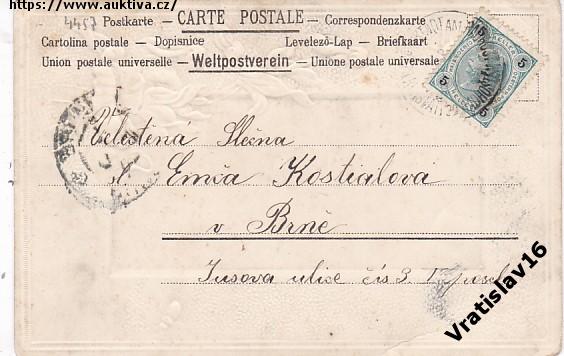 https://www.auktiva.cz/
4457
Postkarte — CARTE POSTALE — Correspondenzkarte
Cartolina postale — Dopisnice Levelező-Lap — Briefkaart
Union postale universelle — Weltpostverein — Unione postale universale
5 5
Ctěná Slečna
sl. Emča Kostialova
v Brně
Husova ulice čís 3.
Vratislav16